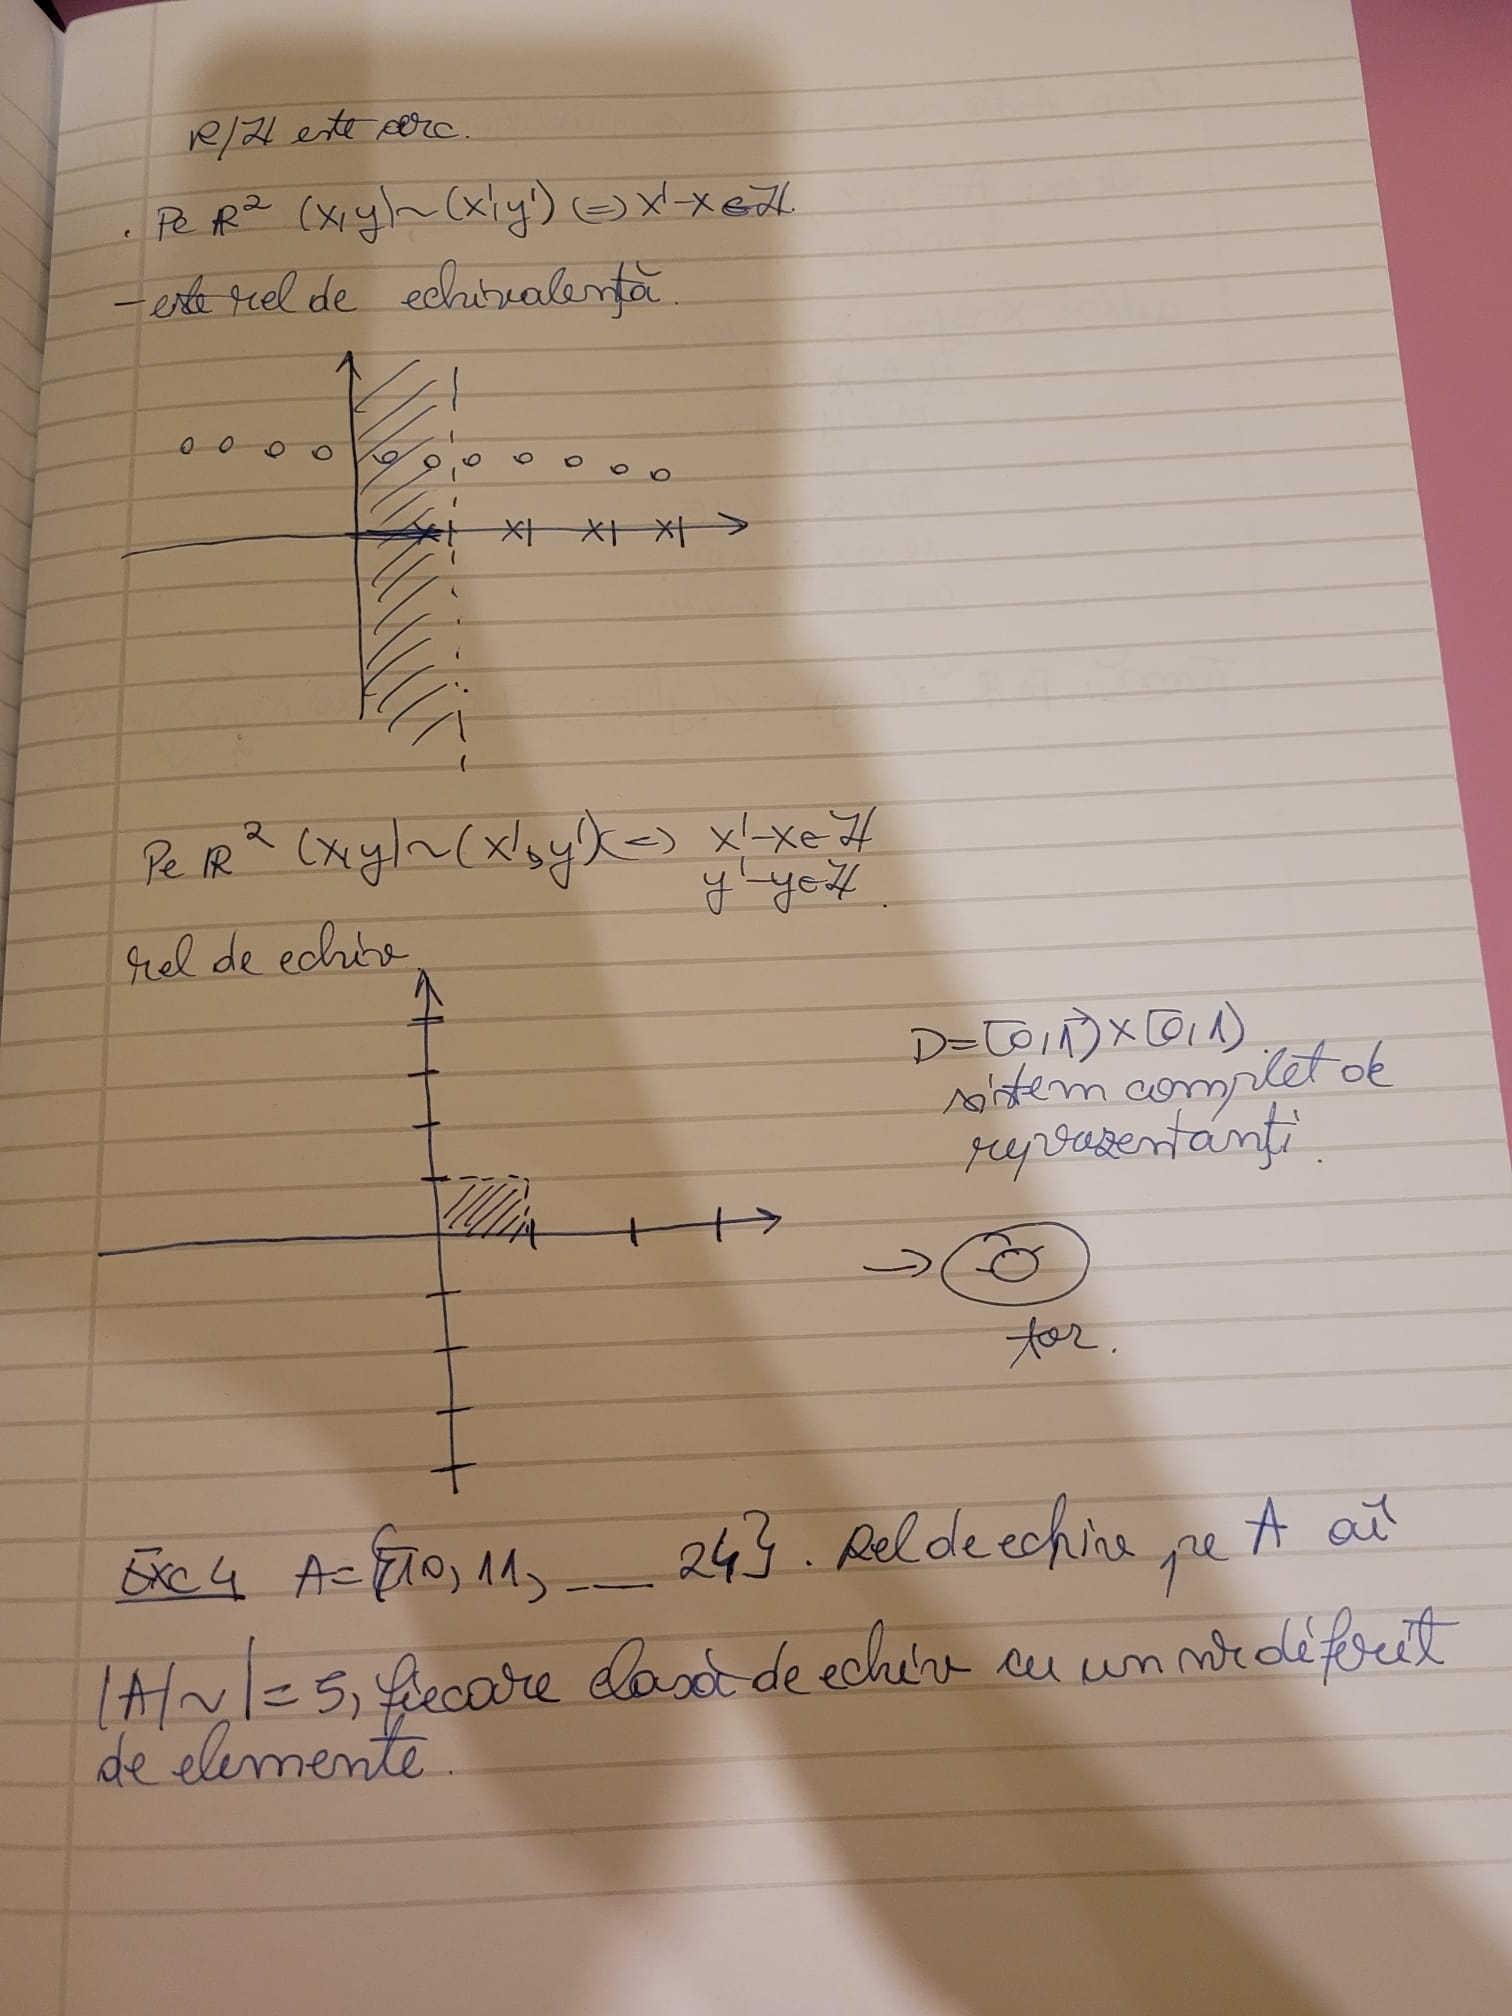 R/ℤ este cerc.
. Pe ℝ² (x,y)~(x',y') (=) x'-x∈ℤ.
- este rel de echivalență.
Pe ℝ² (x,y)~(x',y') (=) x'-x∈ℤ
y'-y∈ℤ.
rel de echiv
D=[0,1)×[0,1).
sistem complet de
reprezentanți.
→
tor.
Exc 4 A={10, 11, ... 24}. Rel de echiv pe A aî
|A/~|=5, fiecare clasă de echiv cu un nr diferit
de elemente.